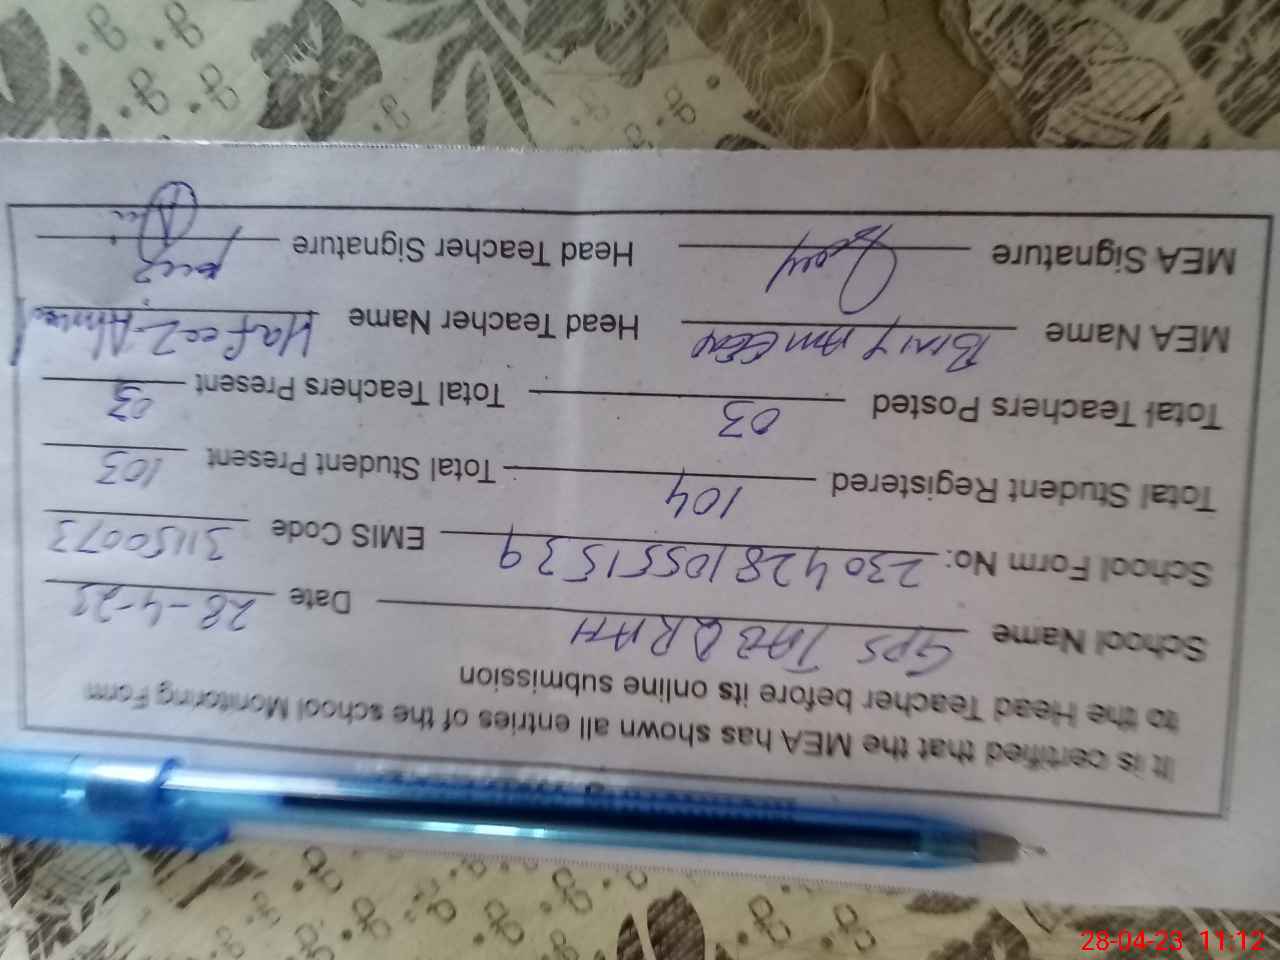 It is certified that the MEA has shown all entries of the school Monitoring Form
to the Head Teacher before its online submission
School Name GPS TABQRATH Date 28-4-23
School Form No: 23042810551539 EMIS Code 31150073
Total Student Registered 104 Total Student Present 103
Total Teachers Posted 03 Total Teachers Present 03
MEA Name Head Teacher Name Hafeez Ahmed
MEA Signature Head Teacher Signature
28-04-23 11:12